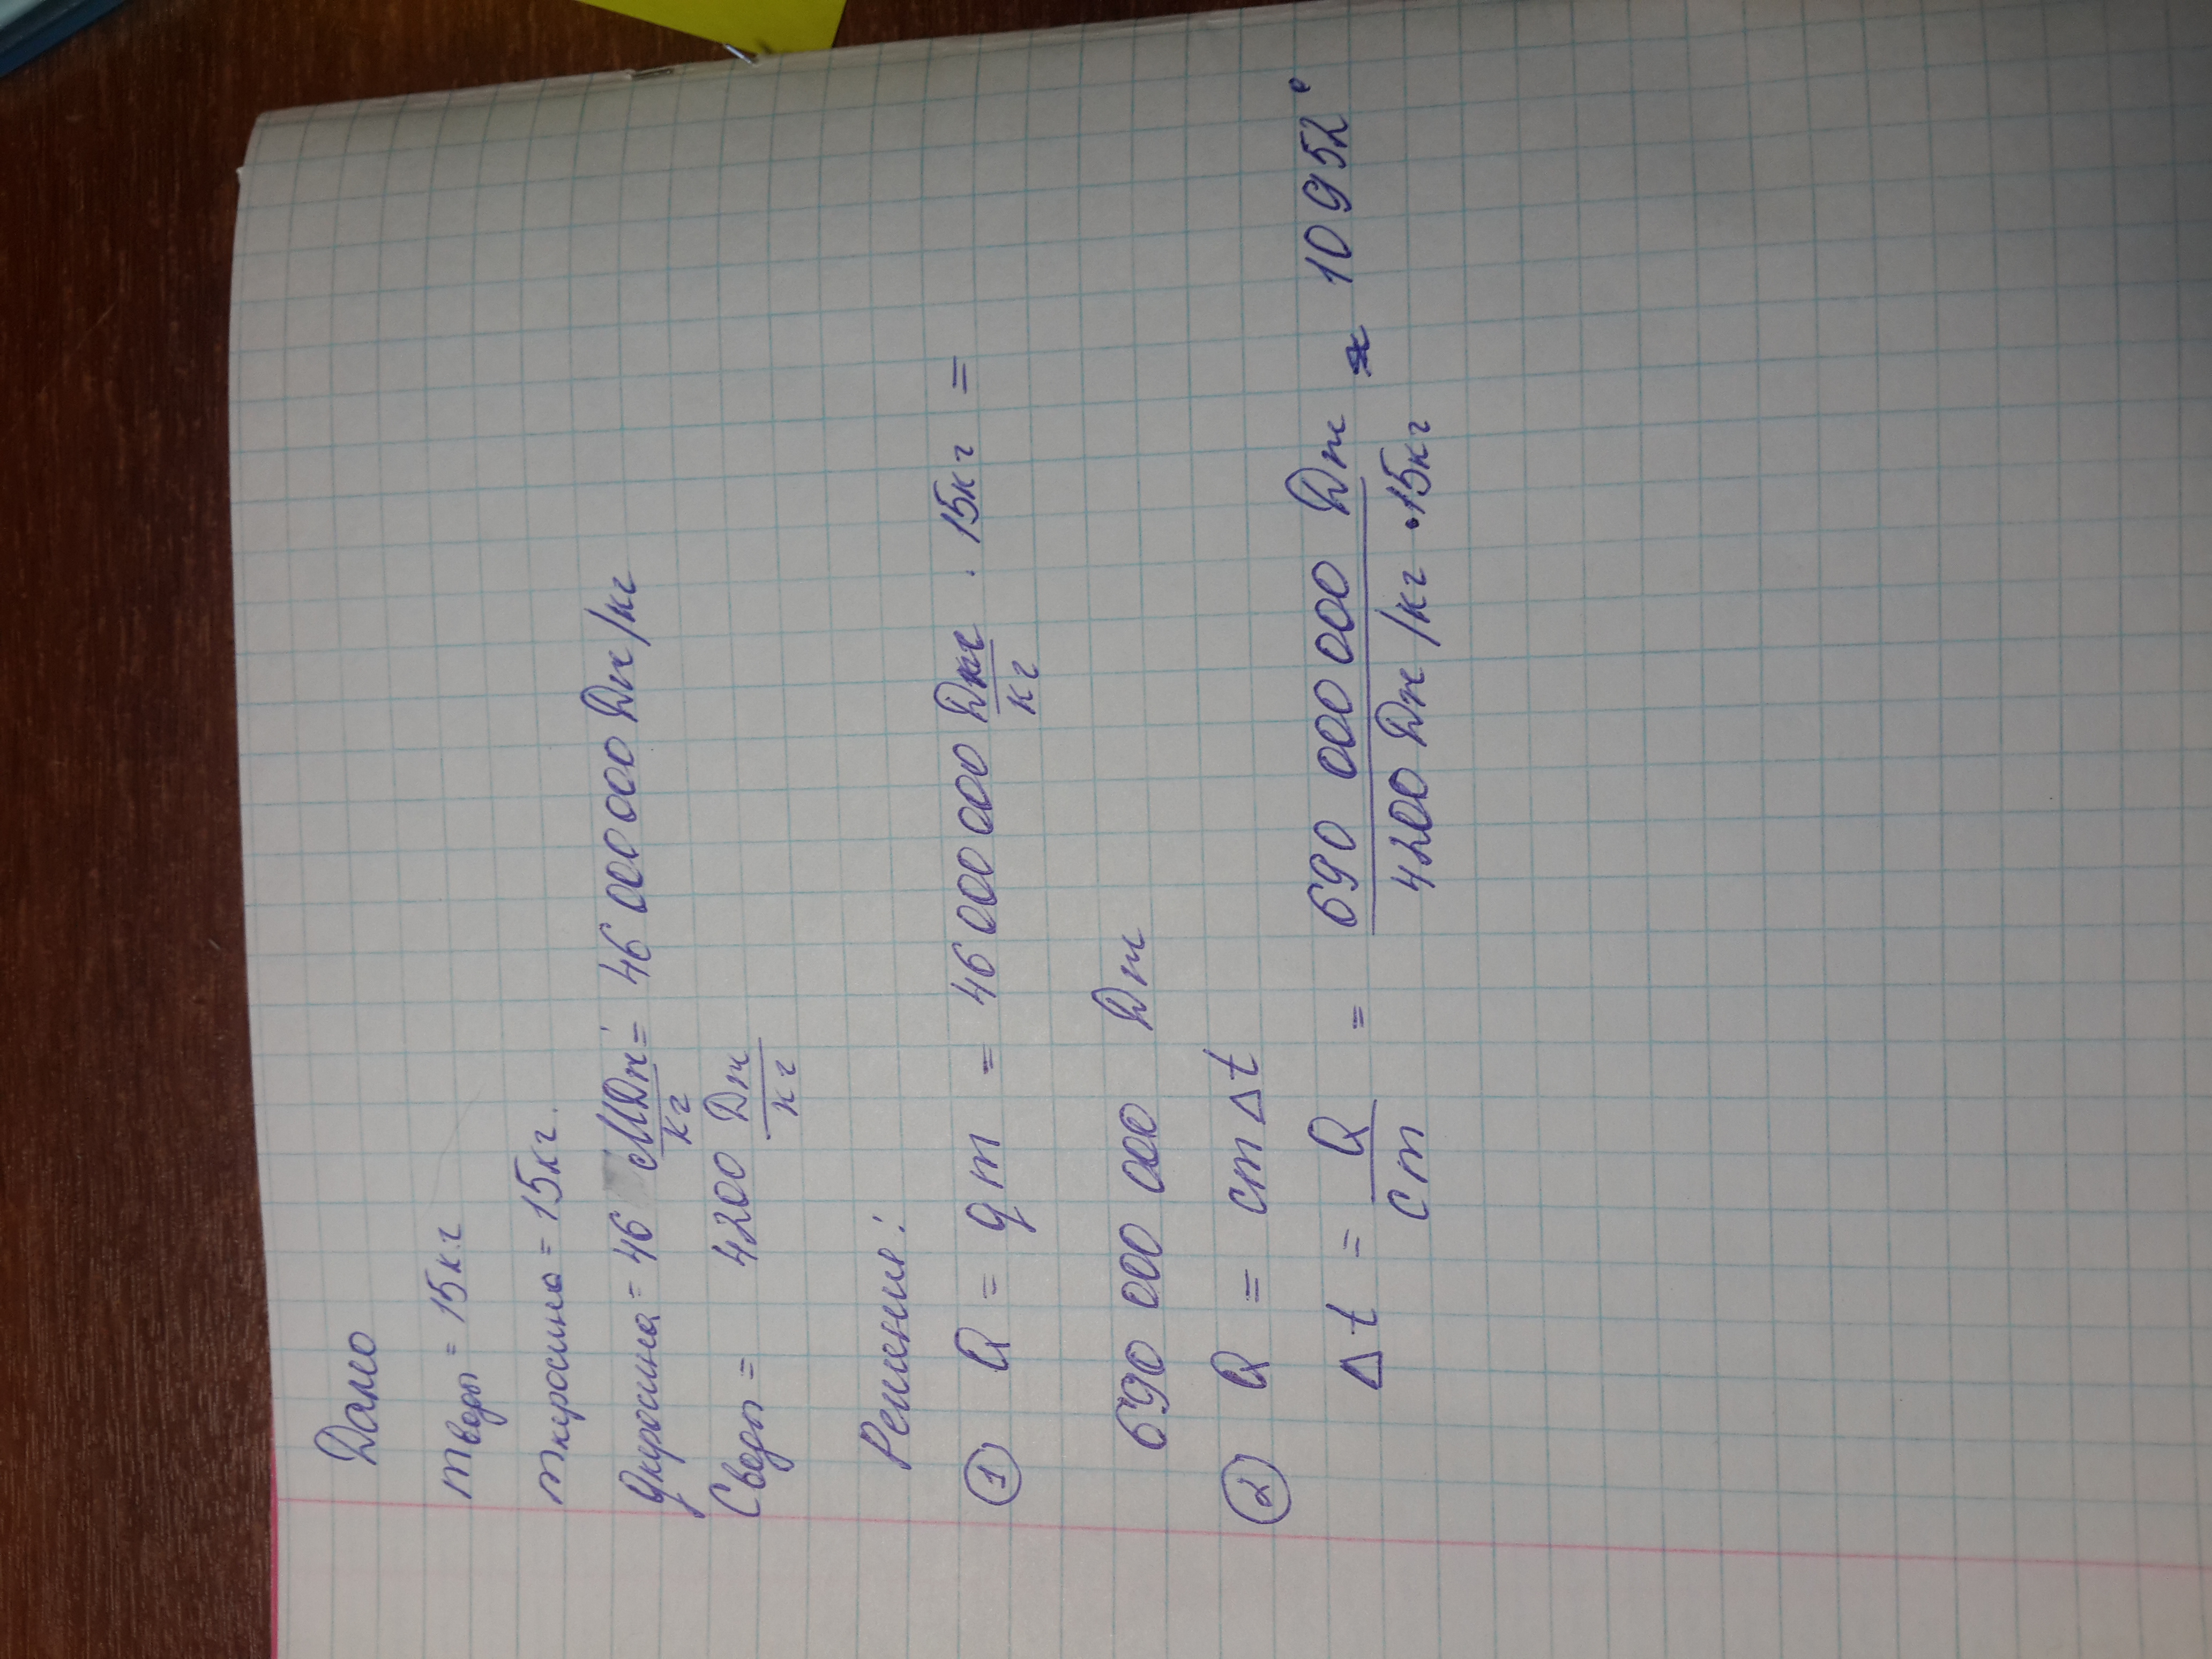 Дано
mводы = 15кг
mкеросина = 15кг.
qкеросина = 46 МДж/кг = 46 000 000 Дж/кг
Cводы = 4200 Дж/кг
Решение:
① Q = qm = 46 000 000 Дж/кг · 15кг =
690 000 000 Дж
② Q = cm Δt
Δt = Q/cm = 690 000 000 Дж / 4200 Дж/кг · 15кг ≈ 10952°